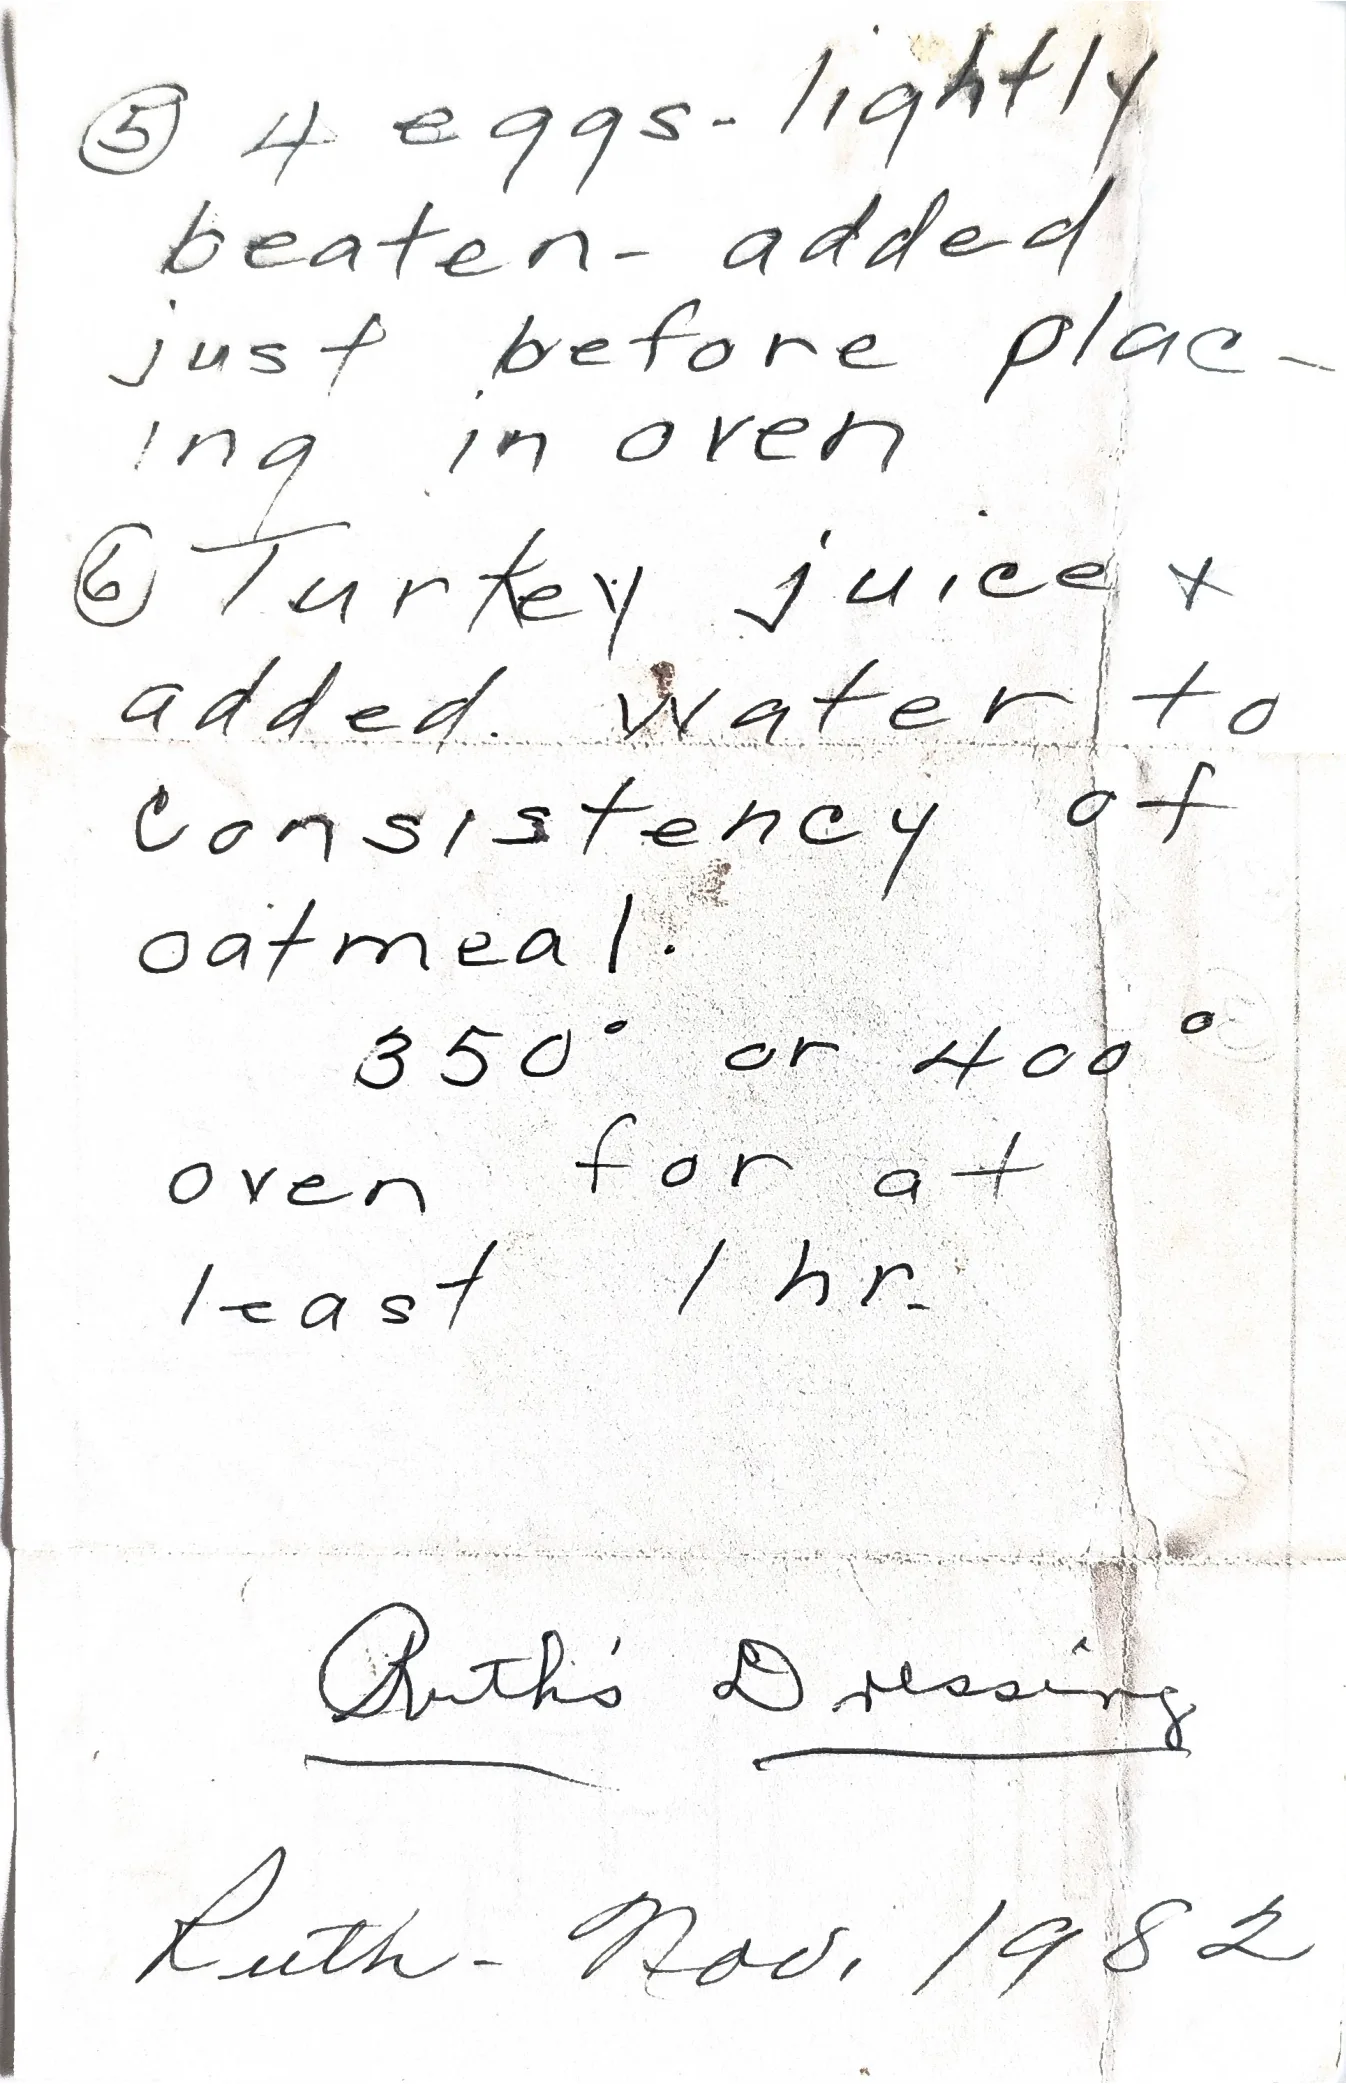 ⑤ 4 eggs - lightly
beaten - added
just before plac-
ing in oven
⑥ Turkey juice +
added water to
consistency of
oatmeal.
350° or 400°
oven for at
least 1 hr.
Ruth's Dressing
Ruth - Nov. 1982